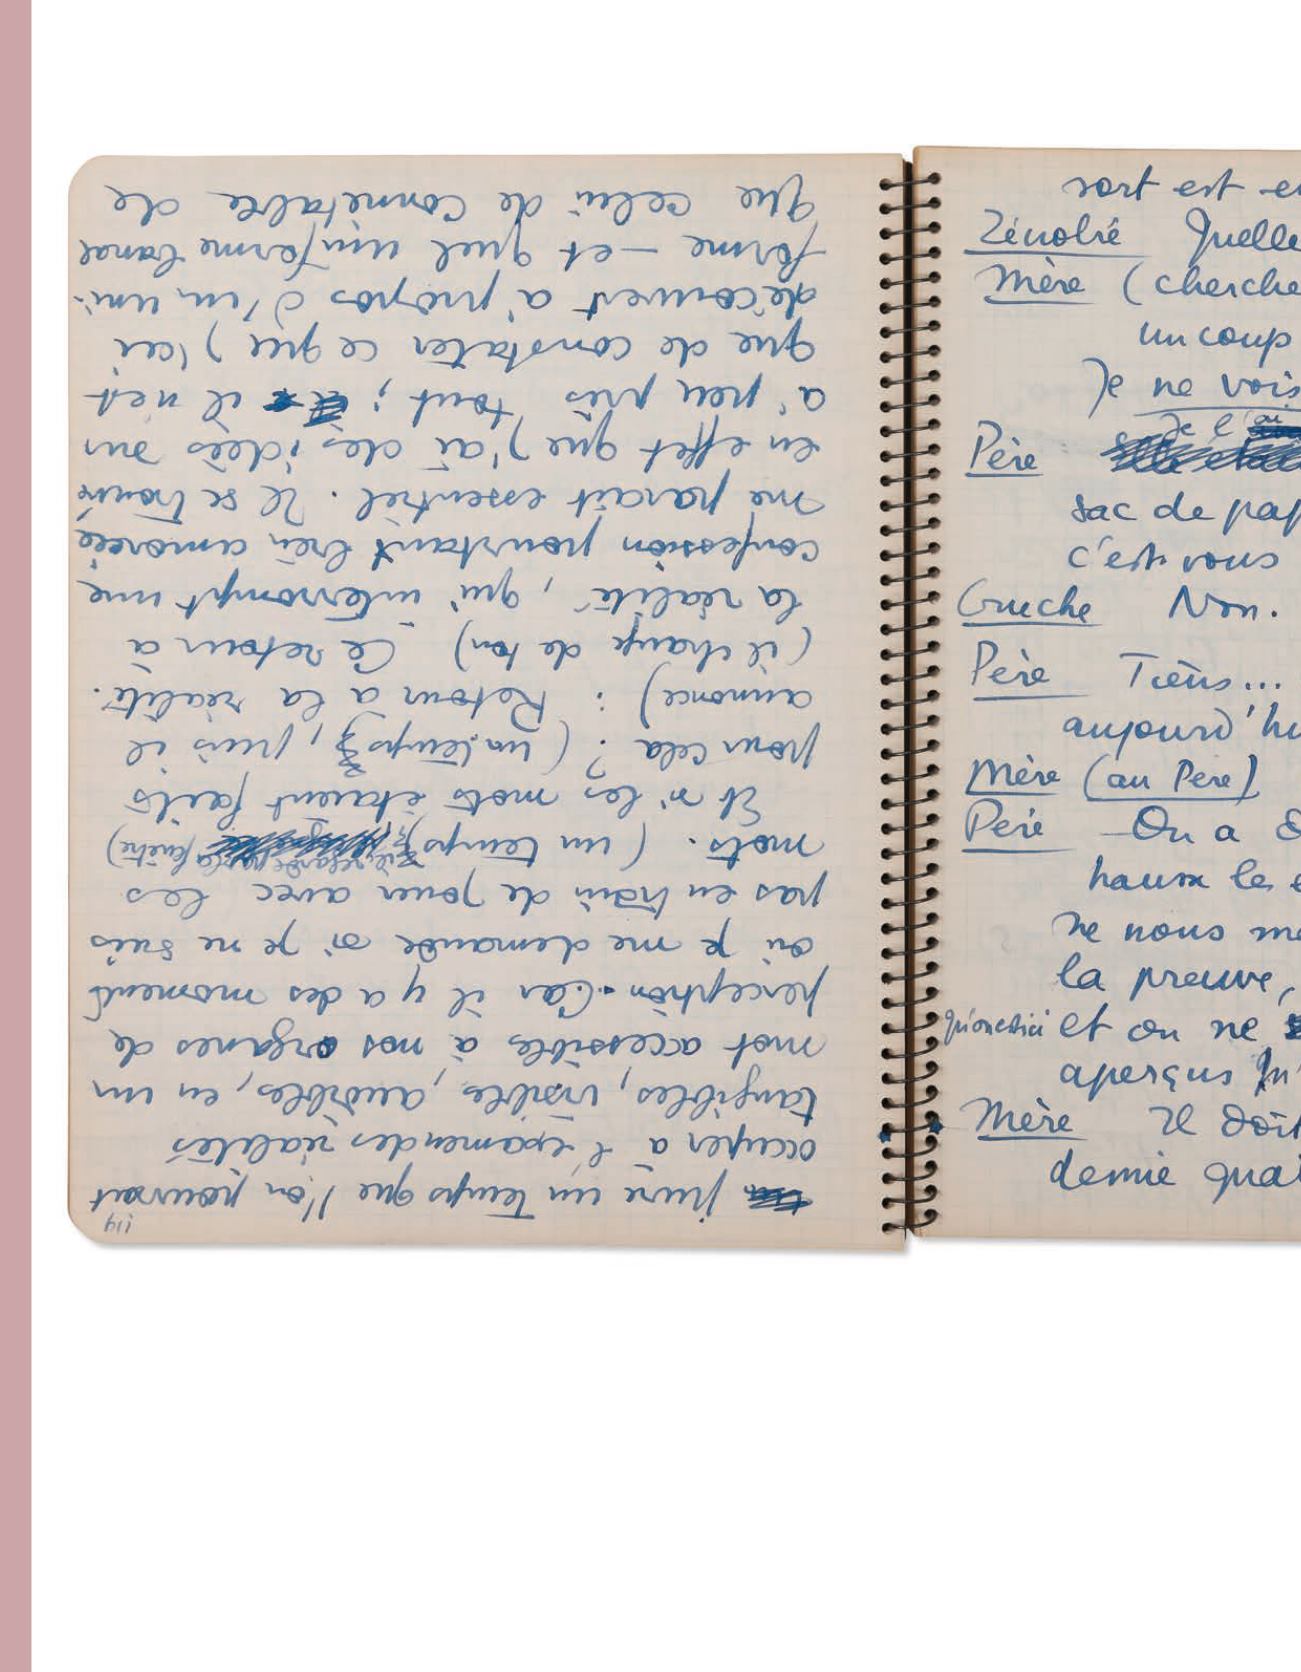 114
pure un temps que l'on pourrait
occuper à l'examen des réalités
tangibles, visibles, audibles, en un
mot accessibles à nos organes de
perception. Car il y a des moments
où je me demande si je ne suis
pas en train de jouer avec les
mots. (un temps, il regarde par la fenêtre)
Et si les mots étaient faits
pour cela ? (un temps, puis il
annonce) : Retour à la réalité.
(il change de ton) Ce retour à
la réalité, qui interrompt une
confession pourtant bien amorcée
me paraît essentiel. Il se trouve
en effet que j'ai des idées sur
à peu près tout ; il n'est
que de constater ce que j'ai
découvert à propos d'un uni-
forme — et quel uniforme banal
que celui de connétable de
sort est
Zénobie Quelle
Mère (cherche
un coup
Je ne vois
Père Je l'ai
sac de pap
c'est vous
Cruche Non.
Père Tiens...
aujourd'hu
Mère (au Père)
Père On a
haussx les
ne nous
la preuve,
qu'on est ici et on ne
aperçus qu'
Mère Il doit
demie